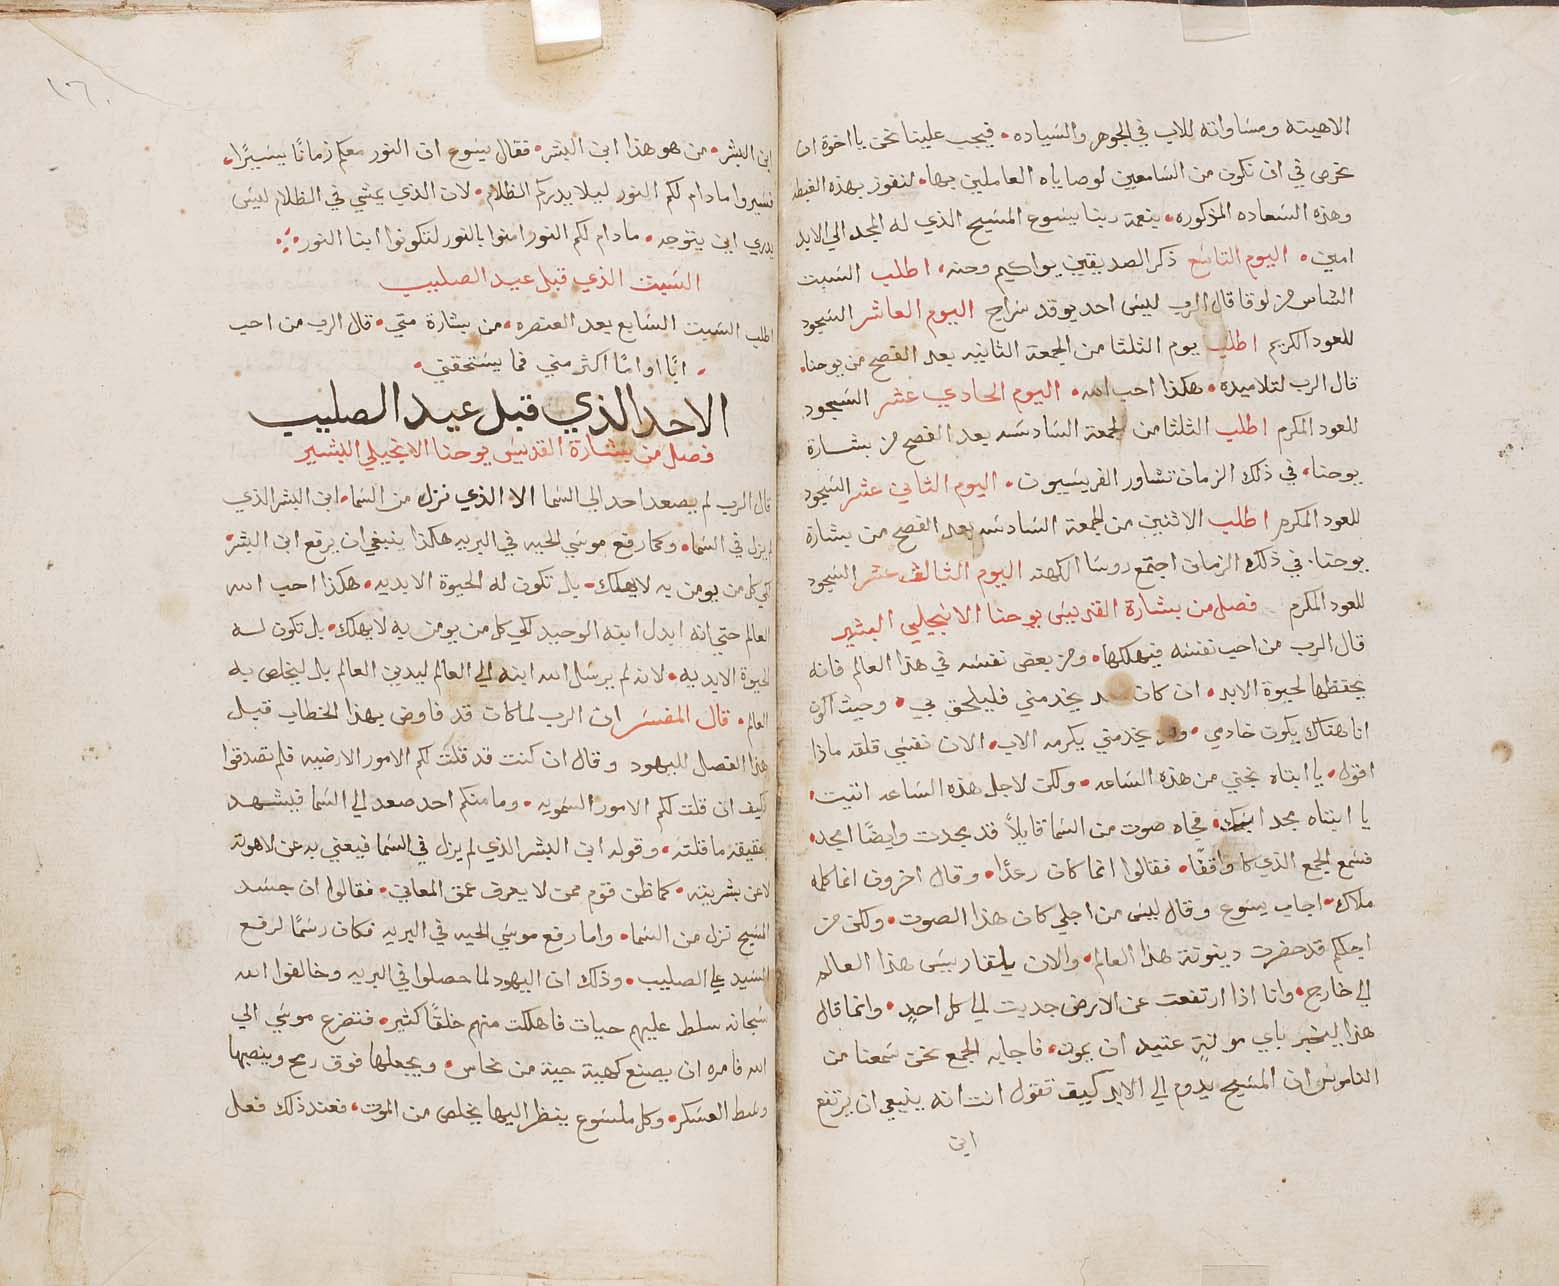 الاهيته ومساواته للاب في الجوهر والسياده • فيجب علينا نحن يا اخوة ان
نحرص في ان نكون من السامعين لوصاياه العاملين بها • لنفوز بهذه الغبطه
وهذه السعاده المذكوره • بنعمة ربنا يسوع المسيح الذي له المجد الي الابد
امين • اليوم التاسع ذكر الصديقين يواكيم وحنه • اطلب السبت
الثامن من لوقا قال الرب ليس احد يوقد سراج اليوم العاشر السجود
للعود الكريم اطلب يوم الثلثا من الجمعة الثانيه بعد الفصح من يوحنا •
قال الرب لتلاميذه • هكذا احب الله • اليوم الحادي عشر السجود
للعود المكرم اطلب الثلثا من الجمعة السادسه بعد الفصح من بشارة
يوحنا • في ذلك الزمان تشاور الفريسيون • اليوم الثاني عشر السجود
للعود المكرم اطلب الاثنين من الجمعة السادسه بعد الفصح من بشارة
يوحنا • في ذلك الزمان اجتمع روسا الكهنه اليوم الثالث عشر السجود
للعود المكرم فصل من بشارة القديس يوحنا الانجيلي البشير
قال الرب من احب نفسه فيهلكها • ومن يبغض نفسه في هذا العالم فانه
يحفظها لحيوة الابد • ان كان احد يخدمني فليلحق بي • وحيث اكون
انا هناك يكون خادمي • ومن يخدمني يكرمه الاب • الان نفسي قلقه ماذا
اقول • يا ابتاه نجني من هذه الساعه • ولكن لاجل هذه الساعه اتيت •
يا ابتاه مجد ابنك • فجاه صوت من السما قايلاً قد مجدت وايضًا امجد •
فسمع الجمع الذي كان واقفًا • فقالوا انما كان رعدًا • وقال اخرون انما كلمه
ملاك • اجاب يسوع وقال ليس من اجلي كان هذا الصوت • ولكن من
اجلكم قد حضرت دينونة هذا العالم • والان يلقا رييس هذا العالم
الي خارج • وانا اذا ارتفعت عن الارض جذبت الي كل احدٍ • وانما قال
هذا ليخبر باي موتةٍ عتيد ان يموت • فاجابه الجمع نحن سمعنا من
الناموس ان المسيح يدوم الي الابد كيف تقول انت انه ينبغي ان يرتفع
ابن
١٦٠
ابن البشر • من هو هذا ابن البشر • فقال يسوع ان النور معكم زمانًا يسيرًا •
فسيروا مادام لكم النور ليلا يدرككم الظلام • لان الذي يمشي في الظلام ليس
يدري اين يتوجه • مادام لكم النور امنوا بالنور لتكونوا ابنا النور •
السبت الذي قبل عيد الصليب
اطلب السبت السابع بعد العنصره • من بشارة متي • قال الرب من احب
• ابًا او امًا اكثر مني فما يستحقني •
الاحد الذي قبل عيد الصليب
فصل من بشارة القديس يوحنا الانجيلي البشير
قال الرب لم يصعد احد الي السما الا الذي نزل من السما • ابن البشر الذي
لم يزل في السما • وكما رفع موسي الحيه في البريه هكذا ينبغي ان يرفع ابن البشر
لكي كل من يومن به لا يهلك • بل تكون له الحيوة الابديه • هكذا احب الله
العالم حتي انه ابدل ابنه الوحيد لكي كل من يومن به لا يهلك • بل تكون له
الحيوة الابديه • لانه لم يرسل الله ابنه الي العالم ليدين العالم بل ليخلص به
العالم • قال المفسر ان الرب لما كان قد فاوض بهذا الخطاب قبل
هذا الفصل لليهود وقال ان كنت قد قلت لكم الامور الارضيه فلم تصدقوا
فكيف ان قلت لكم الامور السمويه • وما منكم احد صعد الي السما فيشهد
بحقيقة ما قلته • وقوله ابن البشر الذي لم يزل في السما فيعني به عن لاهوته
لا عن بشريته • كما ظن قوم ممن لا يعرف عمق المعاني • فقالوا ان جسد
المسيح نزل من السما • واما رفع موسي الحيه في البريه فكان رسمًا لرفع
السيد علي الصليب • وذلك ان اليهود لما حصلوا في البريه وخالفوا الله
سبحانه سلط عليهم حيات فاهلكت منهم خلقًا كثير • فتضرع موسي الي
الله فامره ان يصنع كهية حية من نحاس • ويجعلها فوق رمح وينصبها
وسط العسكر • وكل ملسوع ينظر اليها يخلص من الموت • فعند ذلك فعل